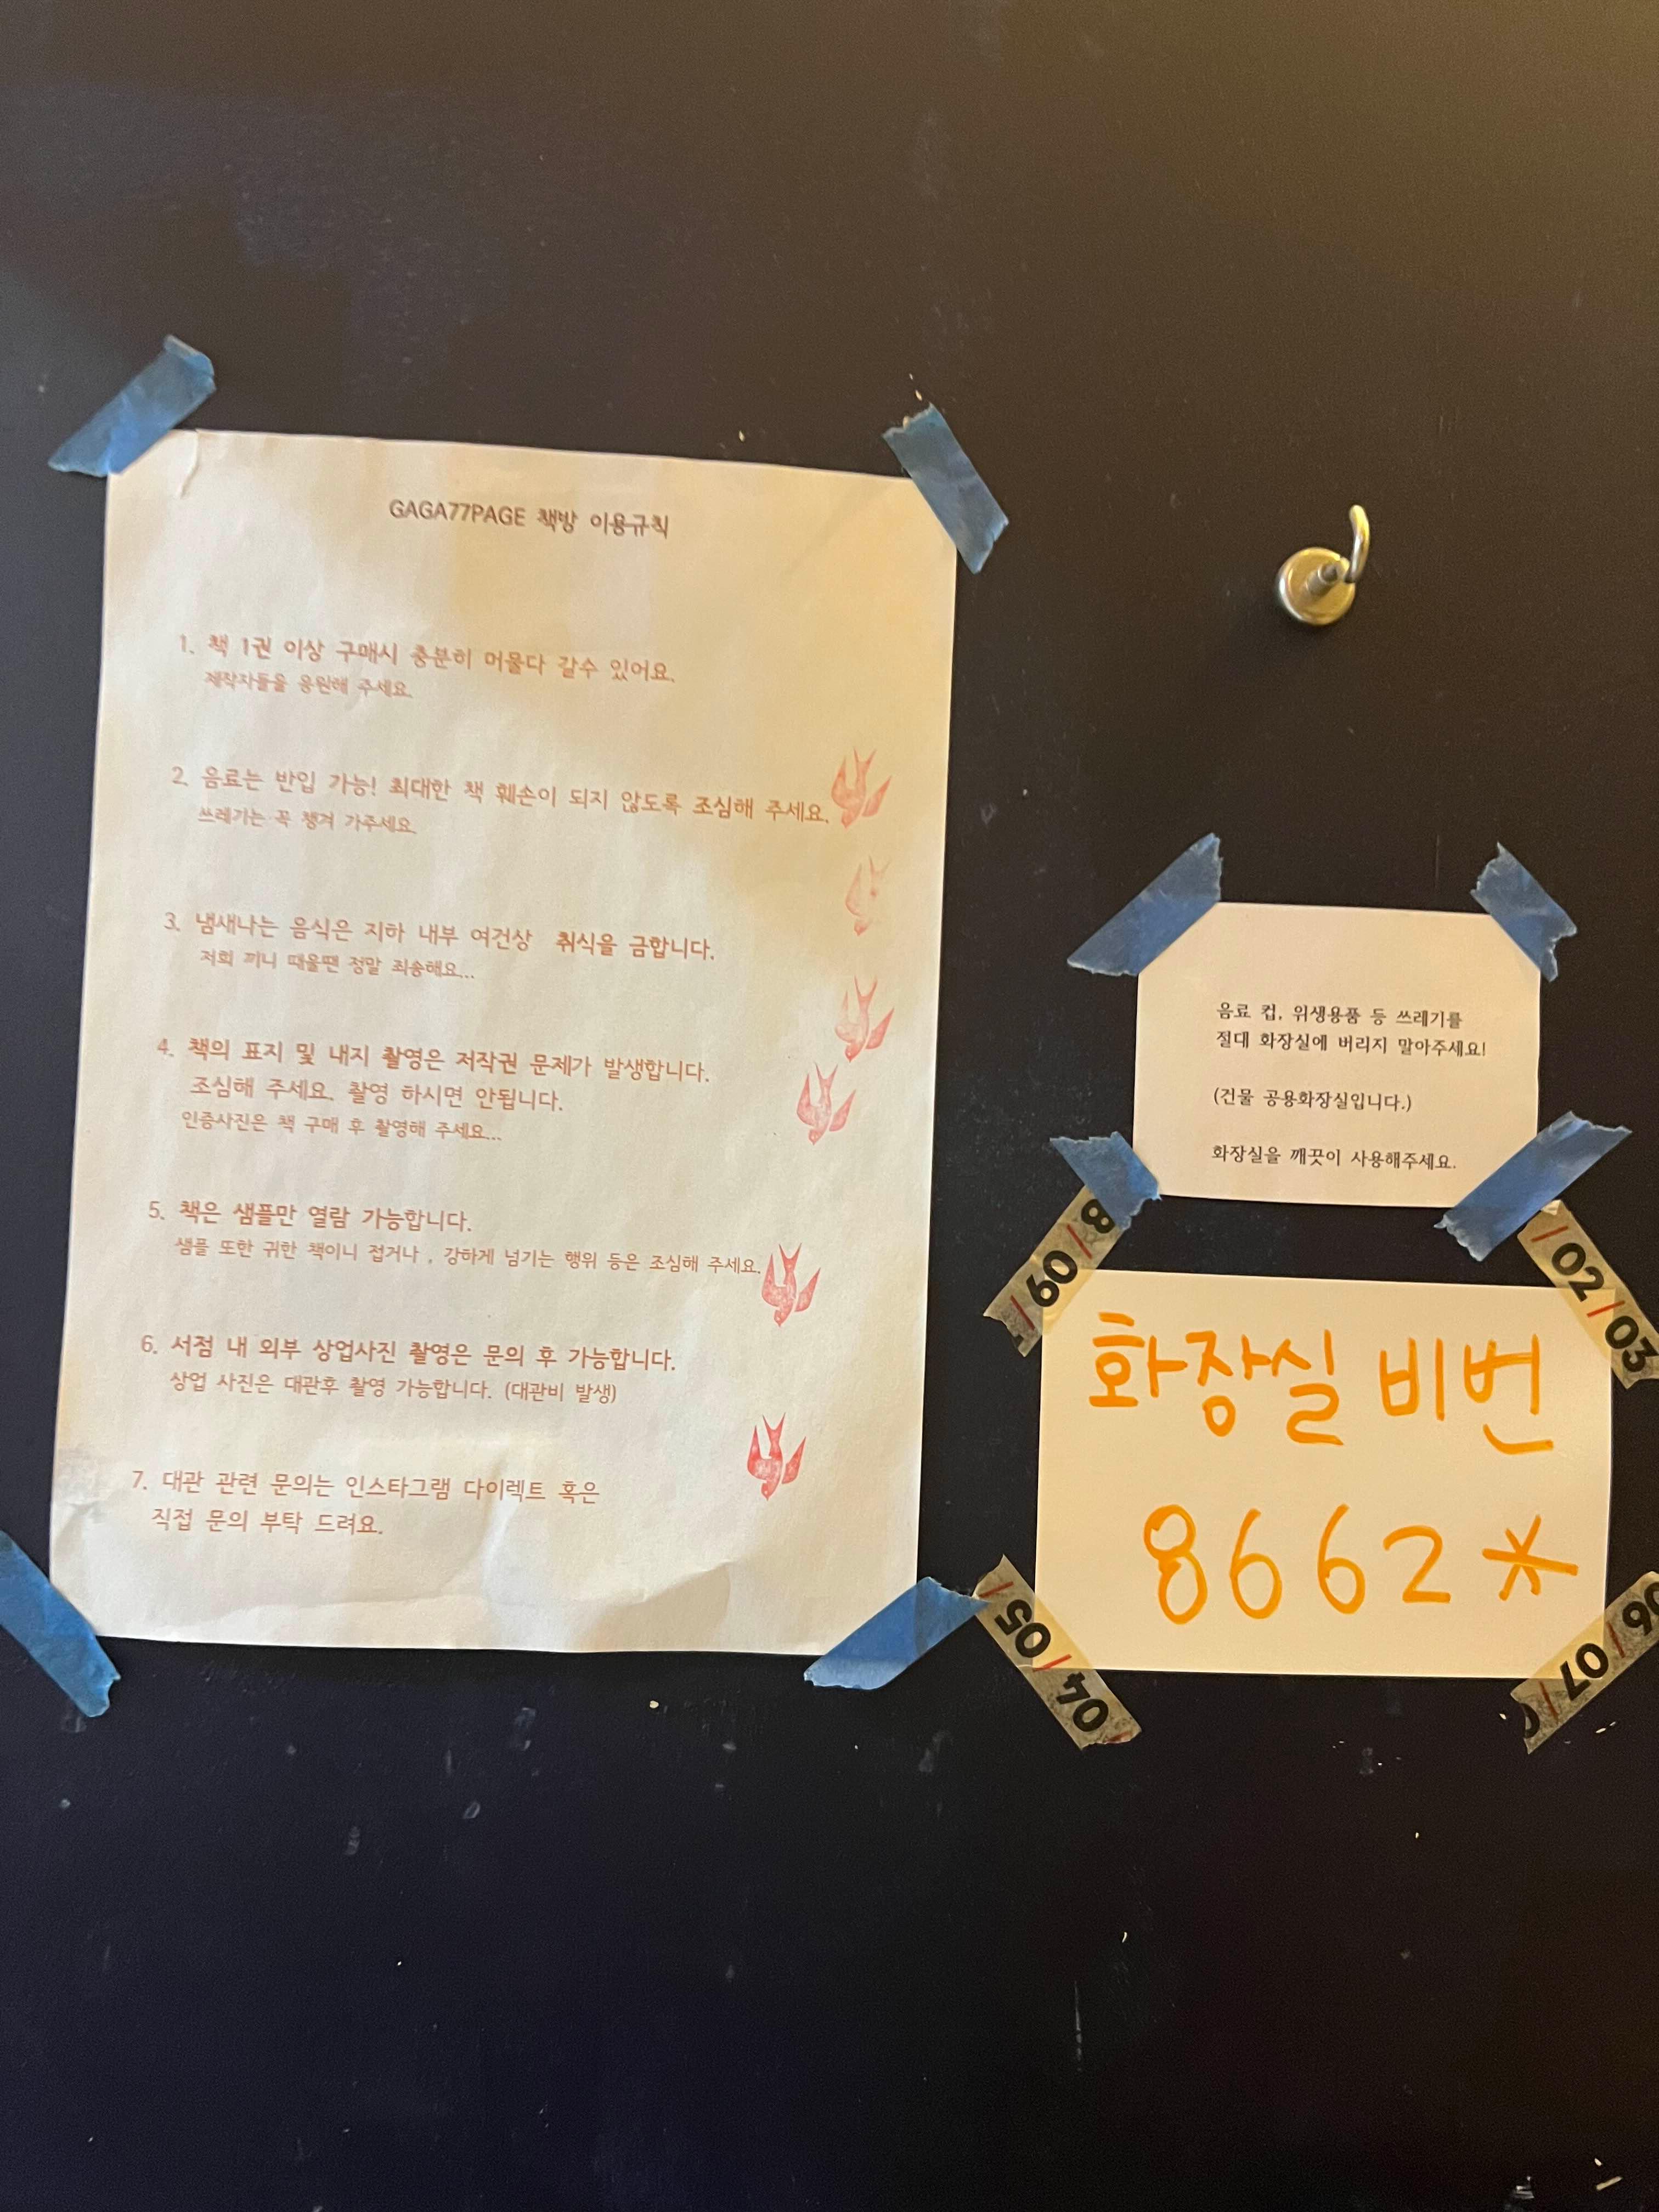 GAGA77PAGE 책방 이용규칙
1. 책 1권 이상 구매시 충분히 머물다 갈수 있어요.
제작자들을 응원해 주세요.
2. 음료는 반입 가능! 최대한 책 훼손이 되지 않도록 조심해 주세요.
쓰레기는 꼭 챙겨 가주세요.
3. 냄새나는 음식은 지하 내부 여건상 취식을 금합니다.
저희 끼니 때울땐 정말 죄송해요...
4. 책의 표지 및 내지 촬영은 저작권 문제가 발생합니다.
조심해 주세요. 촬영 하시면 안됩니다.
인증사진은 책 구매 후 촬영해 주세요...
5. 책은 샘플만 열람 가능합니다.
샘플 또한 귀한 책이니 접거나 , 강하게 넘기는 행위 등은 조심해 주세요.
6. 서점 내 외부 상업사진 촬영은 문의 후 가능합니다.
상업 사진은 대관후 촬영 가능합니다. (대관비 발생)
7. 대관 관련 문의는 인스타그램 다이렉트 혹은
직접 문의 부탁 드려요.
음료 컵, 위생용품 등 쓰레기를
절대 화장실에 버리지 말아주세요!
(건물 공용화장실입니다.)
화장실을 깨끗이 사용해주세요.
/09/8
/02/03
화장실 비번
8662*
/05/04/
06/07/